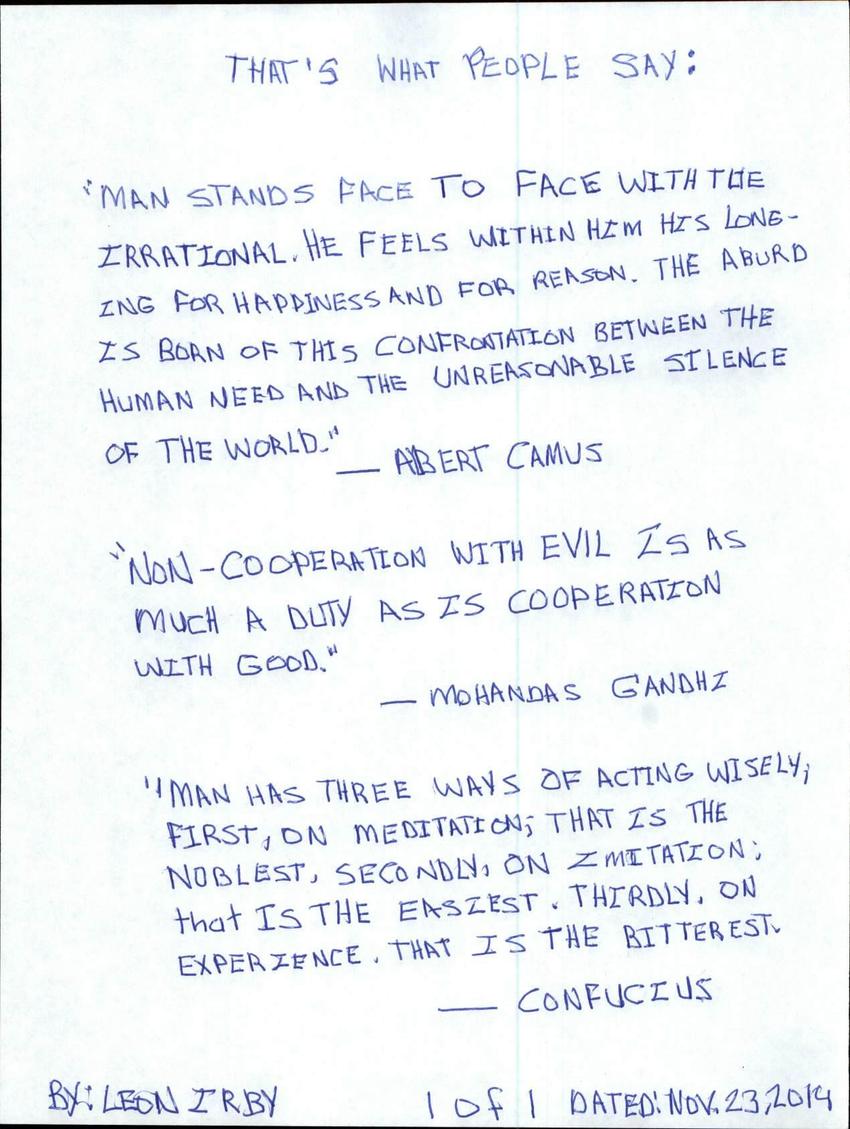 THAT'S WHAT PEOPLE SAY:
"MAN STANDS FACE TO FACE WITH THE
IRRATIONAL. HE FEELS WITHIN HIM HIS LONG-
ING FOR HAPPINESS AND FOR REASON. THE ABURD
IS BORN OF THIS CONFRONTATION BETWEEN THE
HUMAN NEED AND THE UNREASONABLE SILENCE
OF THE WORLD." — ABERT CAMUS
"NON-COOPERATION WITH EVIL IS AS
MUCH A DUTY AS IS COOPERATION
WITH GOOD."
— MOHANDAS GANDHI
"MAN HAS THREE WAYS OF ACTING WISELY;
FIRST, ON MEDITATION; THAT IS THE
NOBLEST, SECONDLY, ON IMITATION;
that IS THE EASIEST. THIRDLY, ON
EXPERIENCE. THAT IS THE BITTEREST.
— CONFUCIUS
BY: LEON IRBY 1 of 1 DATED: NOV. 23, 2014